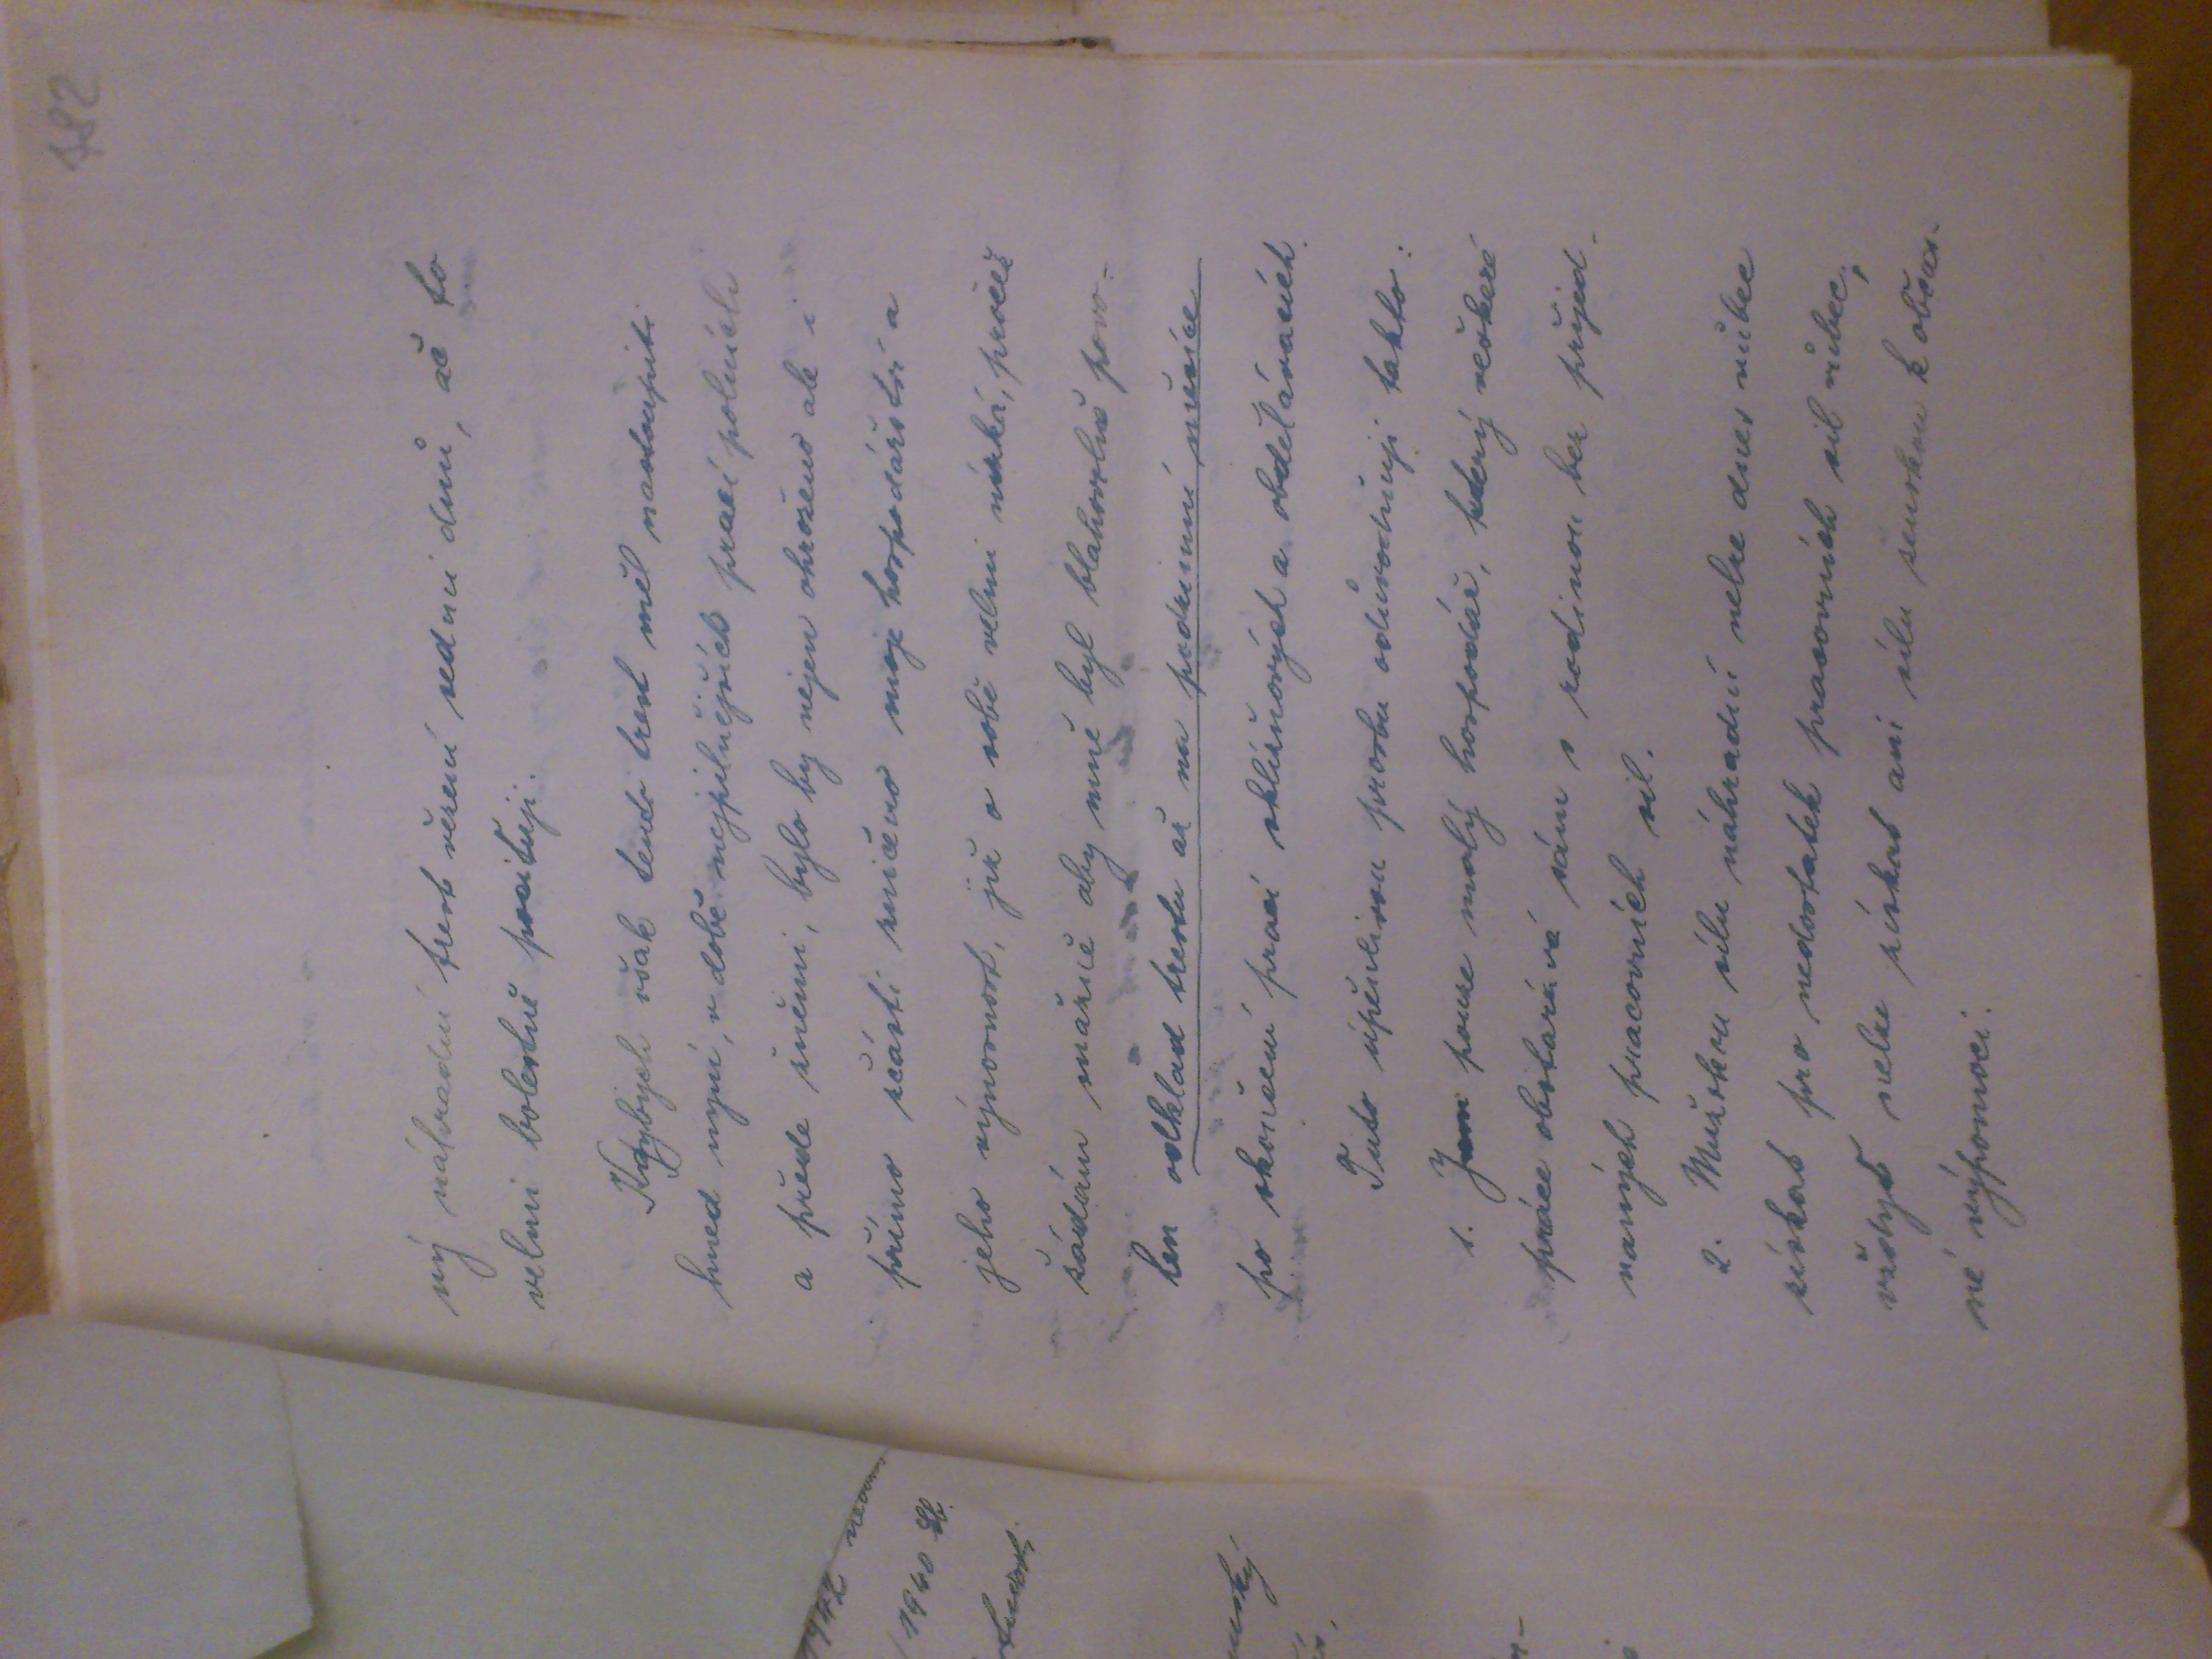 482
ný náhradní trest vězení sedmi dnů, ač to
velmi bolestně pociťuji.
Kdybych však tento trest měl nastoupiti
hned nyní, v době nejpilnějších prací polních
a přede žněmi, bylo by nejen ohroženo ale i
přímo zčásti zničeno moje hospodářství a
jeho výnosnost, již o sobě velmi nízká, pročež
žádám snažně aby mně byl blahovolně povo-
len odklad trestu až na podzimní měsíce
po skončení prací sklizňových a obdělávacích.
Tuto úpěnlivou prosbu odůvodňuji takto:
1. Jsem pouze malý hospodář, který veškeré
práce obstarává sám s rodinou bez přijed-
naných pracovních sil.
2. Mužskou sílu náhradní nelze dnes vůbec
získat pro nedostatek pracovních sil vůbec;
vždyť nelze získat ani sílu ženskou k občas-
né výpomoci.
1942
1940 Sb.